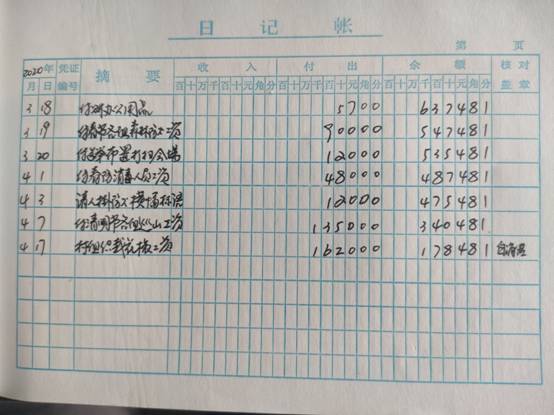 日 记 帐
第 页
2020年 凭证 摘 要 收 入 付 出 余 额 核对
月 日 编号 百十万千百十元角分 百十万千百十元角分 百十万千百十元角分 盖章
3 18 付办公用品 5700 637481
3 19 付春节各组森林防火工资 90000 547481
3 20 付布置打扫会场 12000 535481
4 1 付春防消毒人员工资 48000 487481
4 3 请人挂防火横幅标语 12000 475481
4 7 付清明节各组巡山工资 135000 340481
4 17 村组织栽花板工资 162000 178481